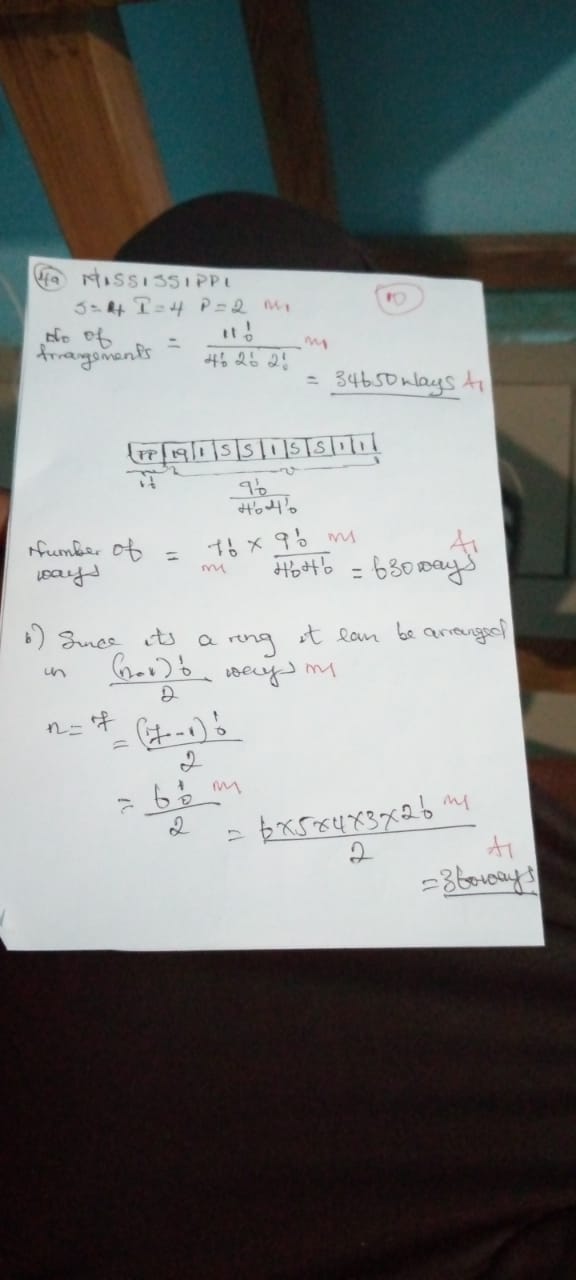 4a MISSISSIPPI
10
S=4 I=4 P=2 M1
No of Arrangements = 11! / 4! 2! 2! M1
= 34650 ways A1
PP M I S S I S S I I
1!
9! / 4! 4!
Number of ways = 1! × 9! / 4! 4! M1 M1 = 630 ways A1
b) Since its a ring it can be arranged
in (n-1)! / 2 ways M1
n = 7 = (7-1)! / 2
= 6! / 2 M1
= 6×5×4×3×2! / 2 M1
A1
= 360 ways